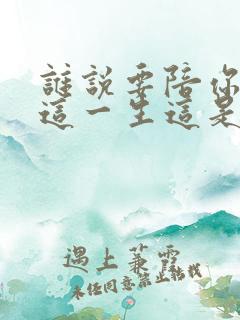 誰說要陪你
這一生這是
遇上蒹霛
未經同意禁止轉載